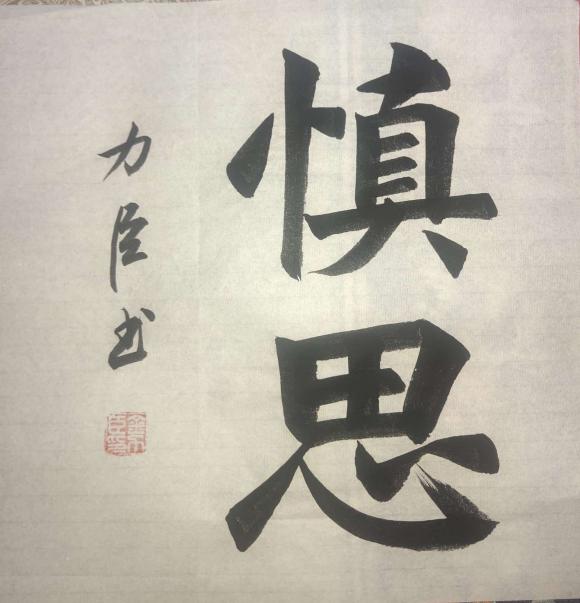 慎思
力臣书